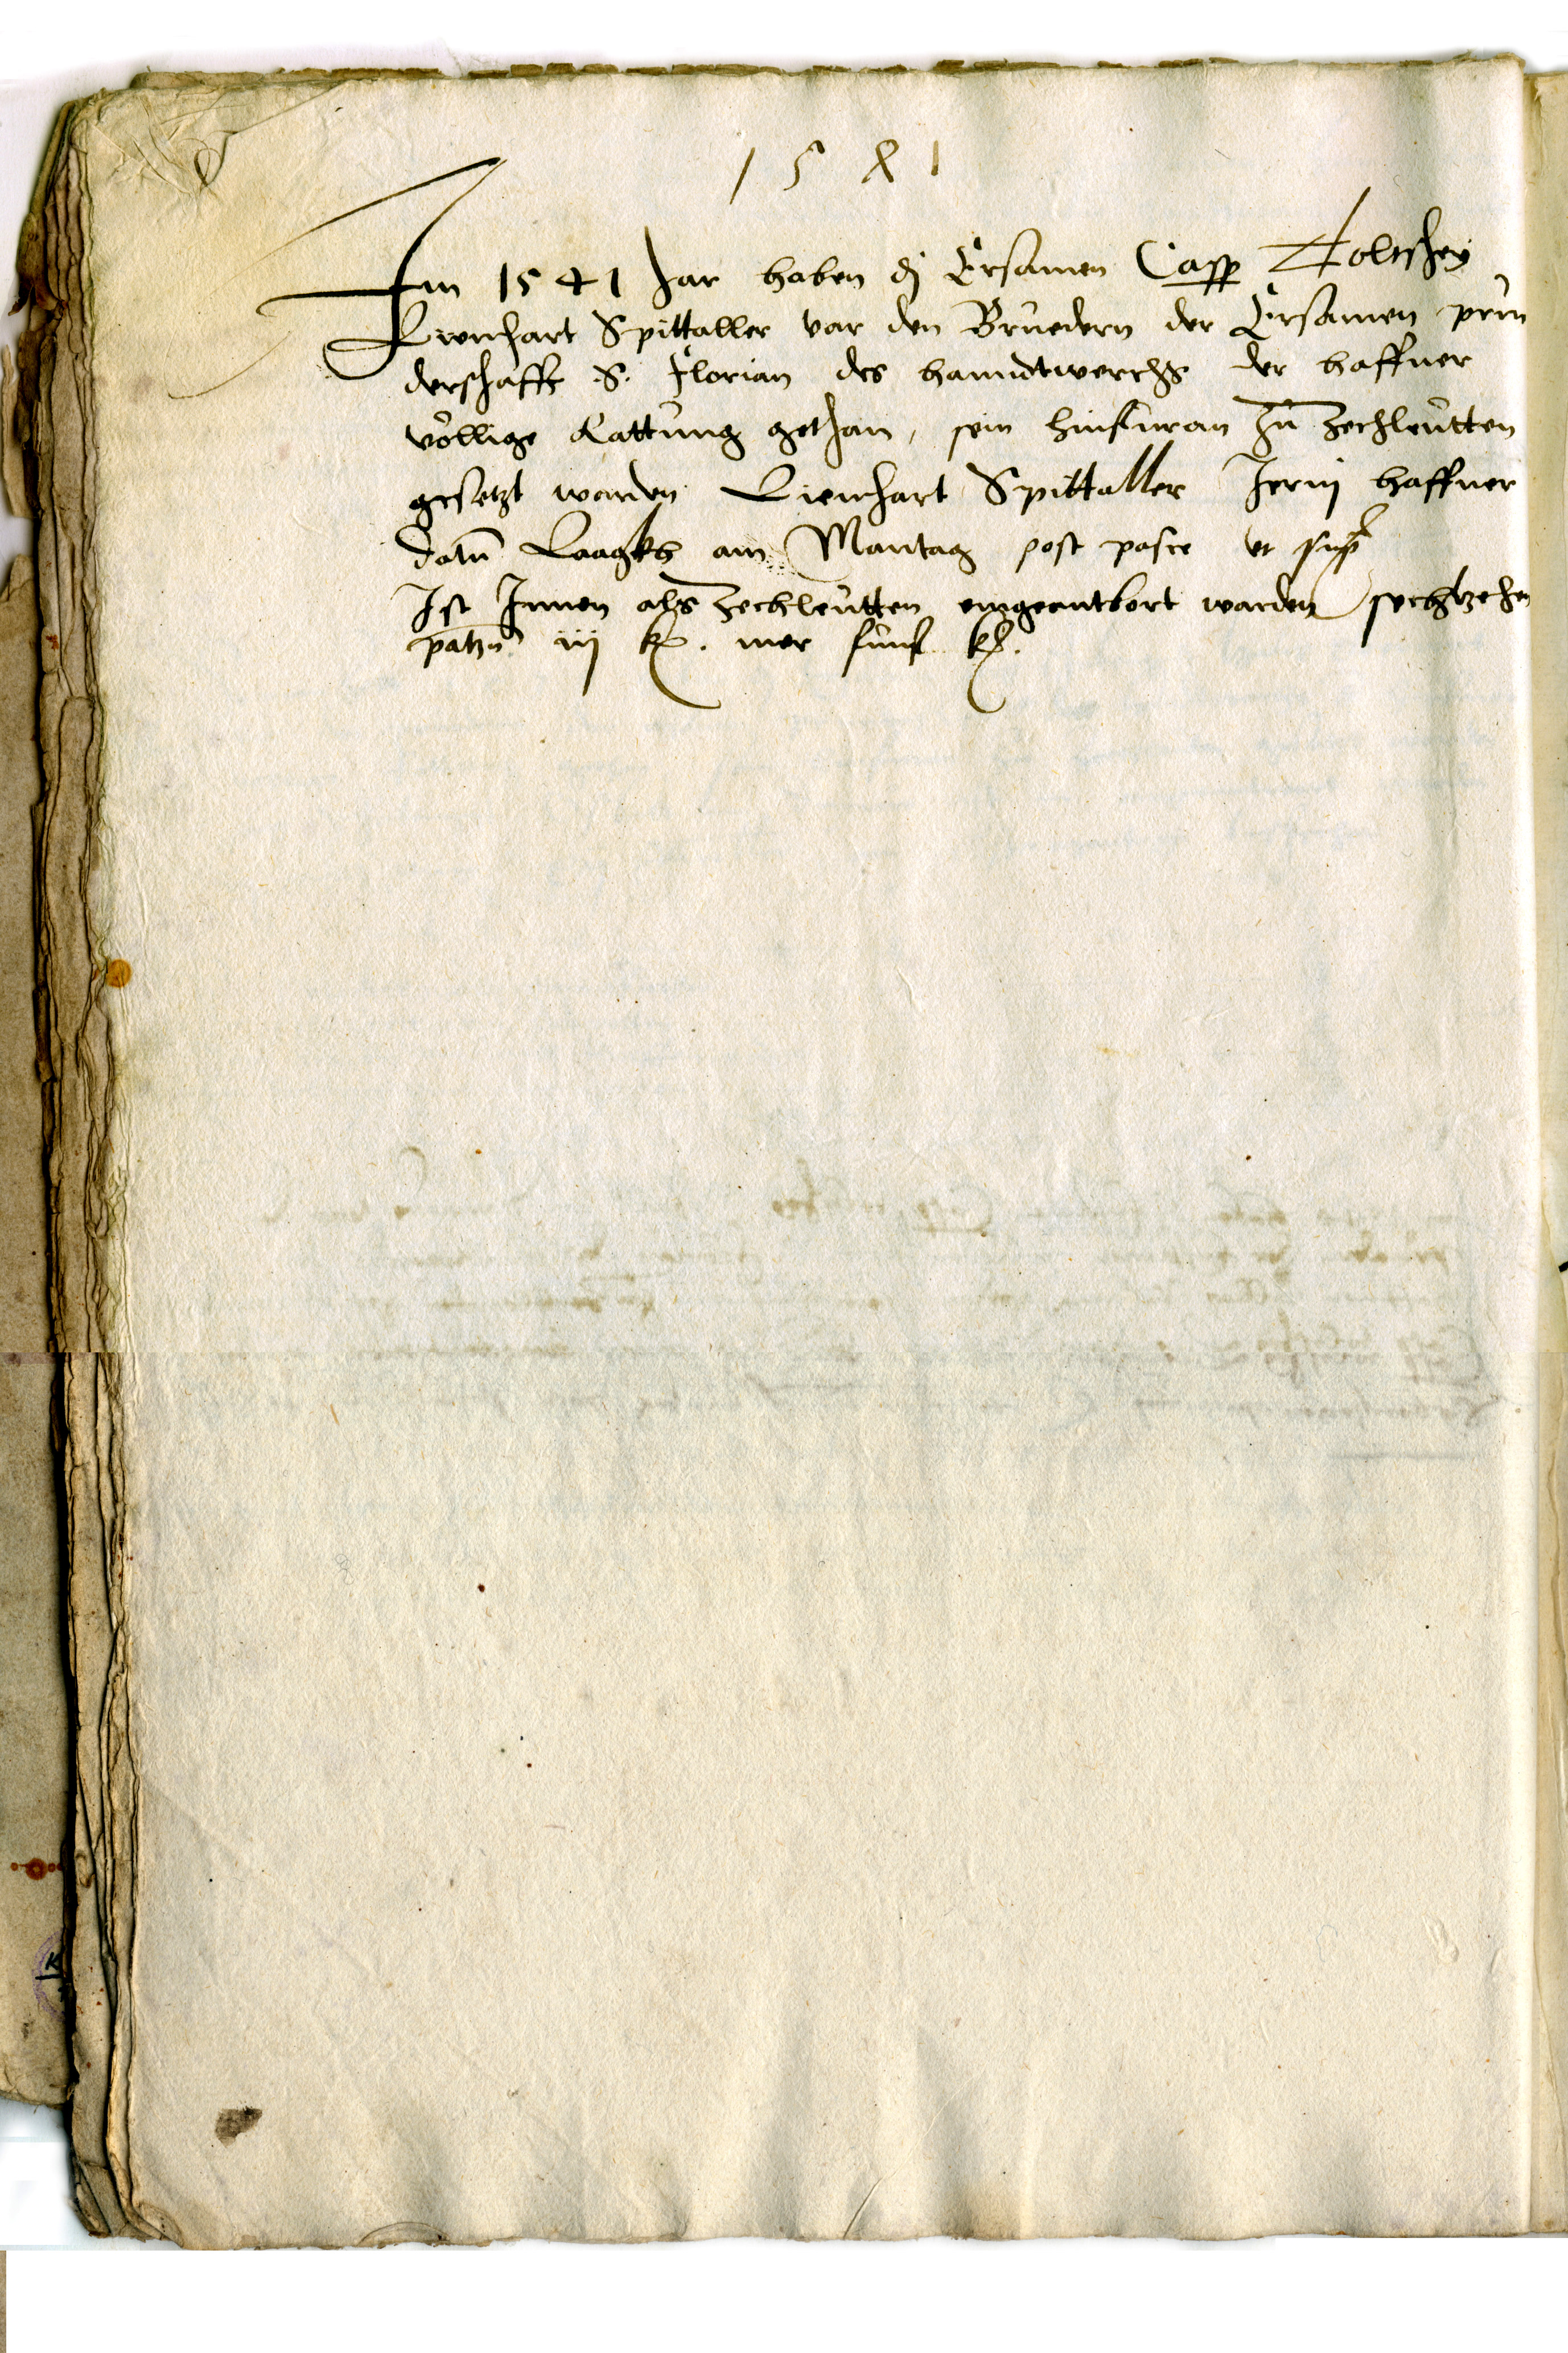 1541
Im 1541 Jar haben dj Ersamen Casp
Lienhart Spittaller var den Bruedern der Ersamen prue
derschafft .S. Florian des hanndtwerchs der haffner
völlige Rattung gethan, sein hinfuran Zu Zechleutten
gesetzt warden Lienhart Spittaller haffner
datu Laagkh am Mantag post pasce ut sup
Ist Innen als Zechleutten eingeantbort warden sechtzehen
patzn iij k. mer funf k.